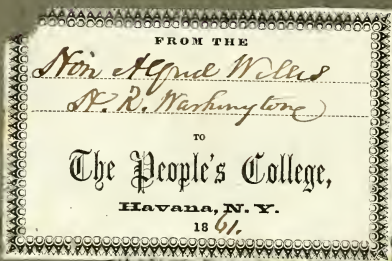 FROM THE
Hon Alfred Wells
H. R. Washington
TO
The People's College,
Havana, N. Y.
1861.